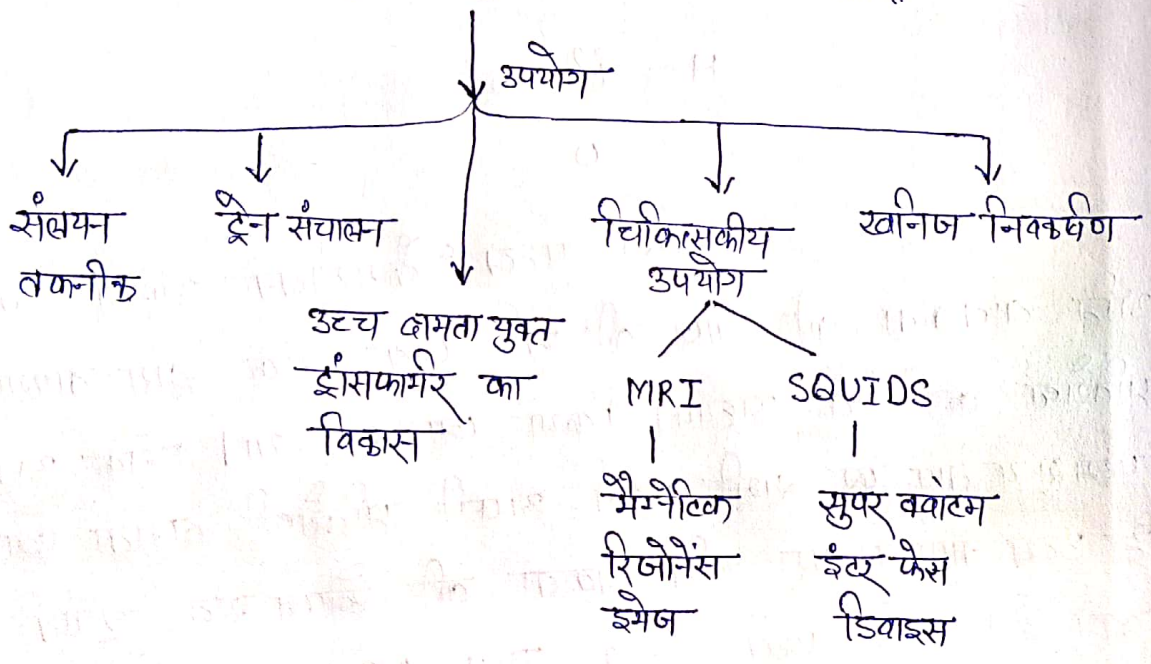 उपयोग
संलयन
तकनीक
ट्रेन संचालन
उच्च क्षमता युक्त
ट्रांसफार्मर का
विकास
चिकित्सकीय
उपयोग
MRI
मैग्नेटिक
रिजोनेंस
इमेज
SQUIDS
सुपर क्वांटम
इंटर फेस
डिवाइस
खनिज निष्कर्षण